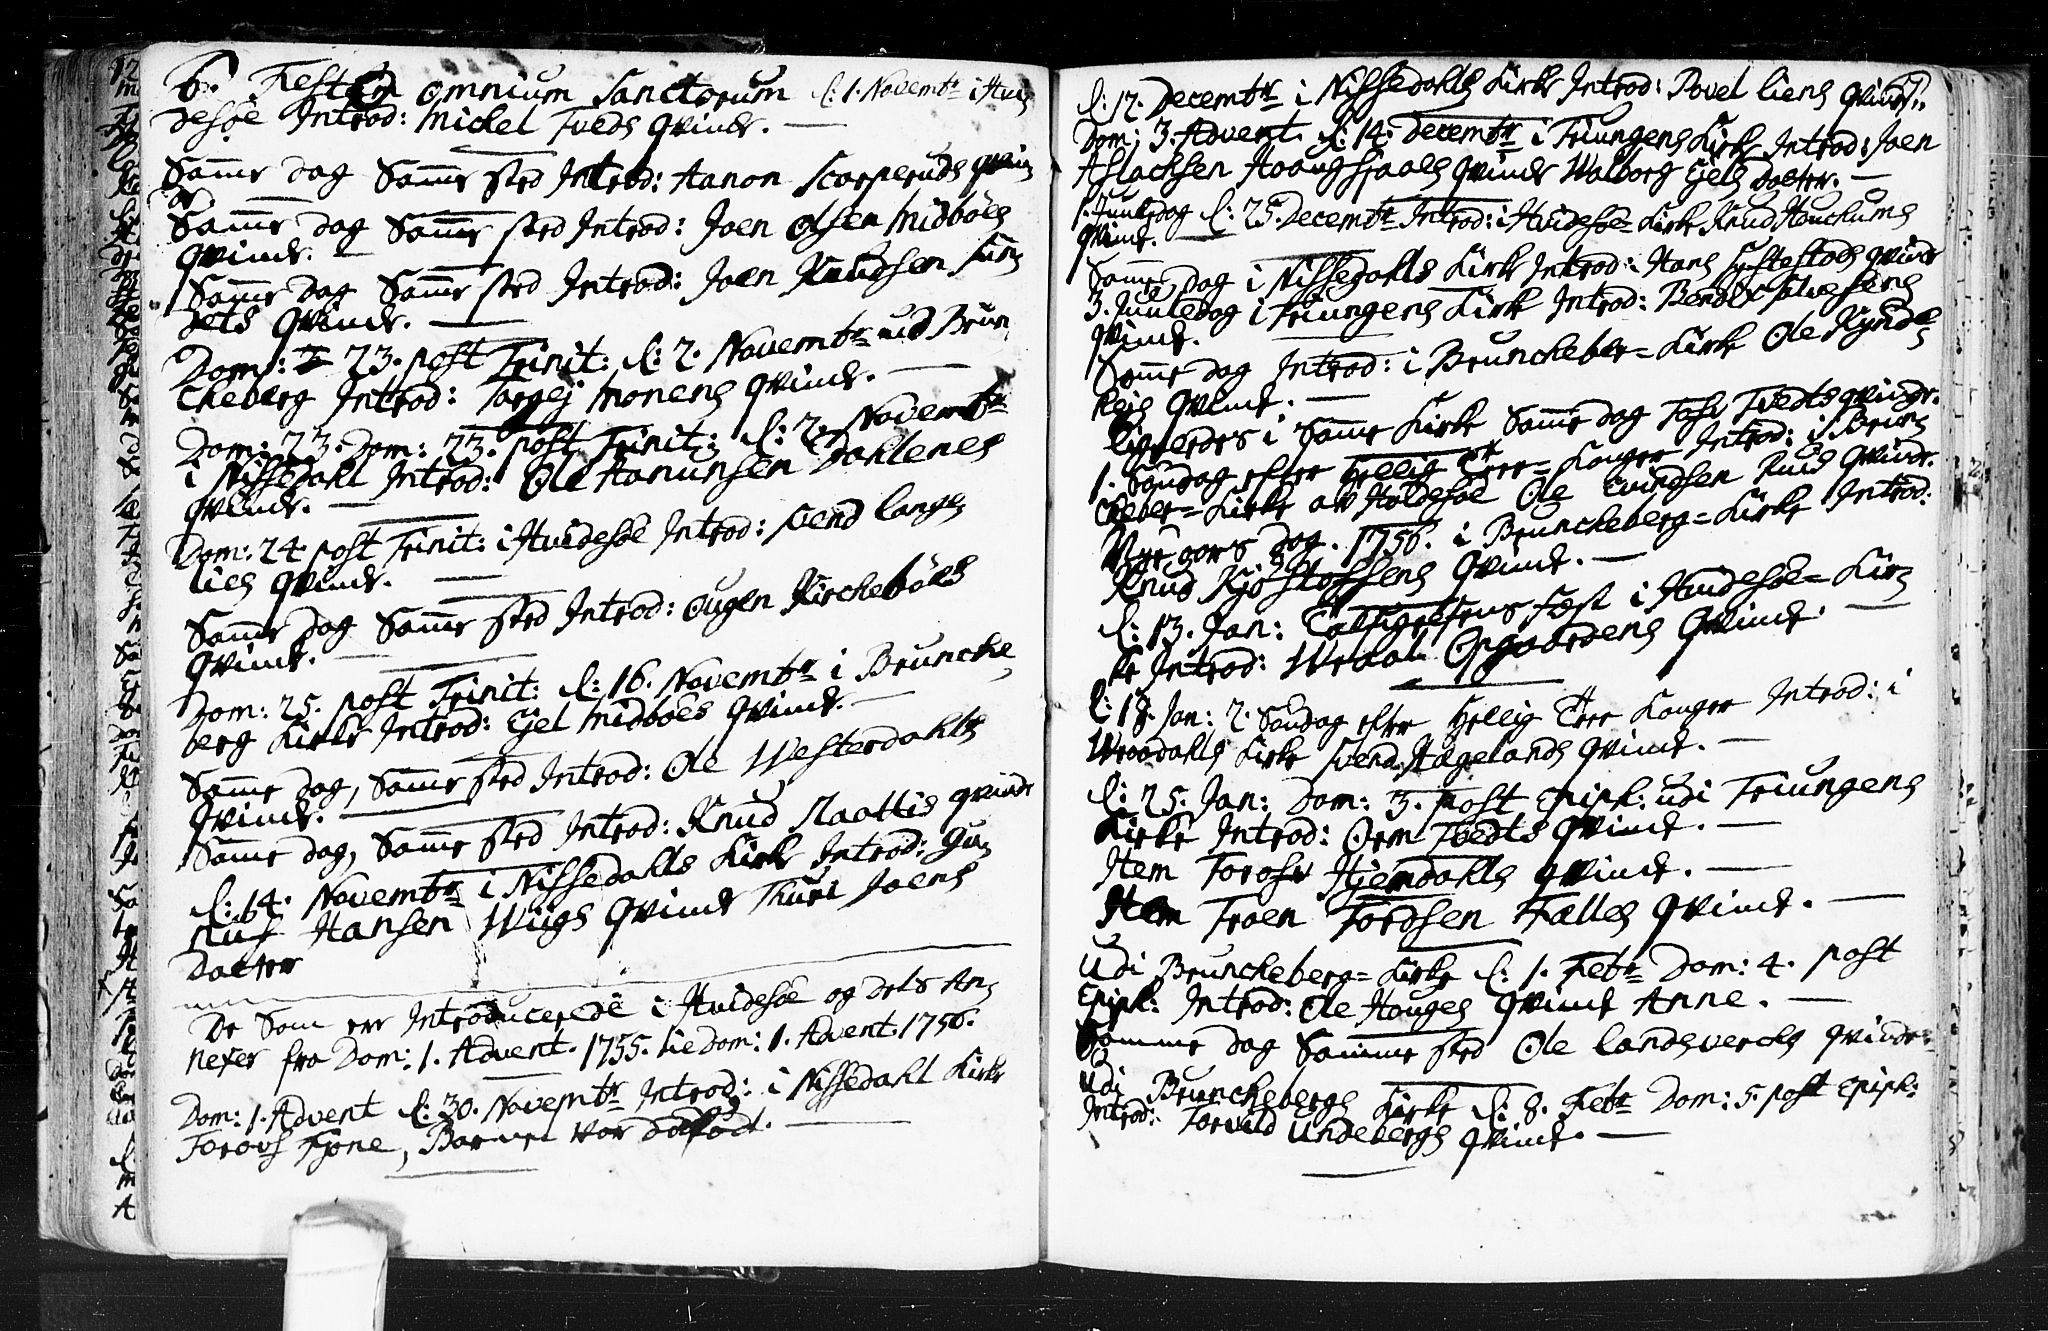 6. Festo omnium Sanctorum d: 1. Novembr i Hvi=
desøe Introd: Michel Tveds Qvinde. —
Samme dag Samme sted Introd: Aanon Scorperuds qvin=
de
Samme dag Samme sted Introd: Joen Olsen Midböes
Qvinde. —
Samme dag Samme sted Introd: Joen Knudsen Sun=
dets Qvinde. —
Dom: 23. post Trinit: d: 2. Novembr ud Brun=
cheberg Introd: Torgej Monens Qvinde. —
Dom: 23. Dom: 23. post Trinit: d: 2. Novembr
i Nissedahl Introd: Ole Hanunsen Dahlenes
Qvinde. —
Dom: 24. post Trinit: i Hvidesöe Introd: Svend lange=
lies Qvinde. —
Samme dag Samme sted Introd: Ougen Kircheböes
Qvinde. —
Dom: 25. post Trinit: d: 16. Novembr i Brunche=
berg Kirke Introd: Ejel Midböes Qvinde. —
Samme dag, Samme sted Introd: Ole Westerdahls
Qvinde. —
Samme dag, Samme sted Introd: Knud Slaattis qvinde
d: 14. Novembr i Nissedahls Kirke Introd: Gu=
Hansen Wiigs Qvinde Thuri Joens
Datter
De Som ere Introducerede i Hvidesöe og dets An=
nexer fra Dom: 1. Advent. 1755. til Dom: 1. Advent. 1756.
Dom: 1. Advent d: 30. Novembr Introd: i Nissedahl Kirke
Torovs Tjöne, Barnet var dödfödt. —
7.
d: 12. Decembr i Nissedahls Kirke Introd: Povel liens Qvinde.
Dom: 3. Advent. d: 14. Decembr i Triungens Kirke Introd: Joen
Aslachsen Haangsjaaes Qvinde Walborg Ejels Datter. —
1. Juuledag d: 25. Decembr Introd: i Hvidesöe= Kirke Knud Hauchums
Qvinde. —
Samme dag i Nissedahls Kirke Introd: Hans Systestads qvinde
3. Juuledag i Triungens Kirke Introd: Bendix Solvessens
Qvinde.
Samme dag Introd: i Bruncheber= Kirke Ole Kynds=
Qvinde. —
ligeledes i Samme Kirke Samme dag Tosv Tvedts qvinde.
1. Søndag efter Hellig Tree= Konger Introd: i Brun=
cheber= Kirke Ole Evindsen Ruid Qvinde.
Nye aars dag. 1756. i Bruncheberg= Kirke Introd:
Knud Kjöstofsens Qvinde. —
d: 13. Jan: fest i Hvidesöe= Kir=
ke Introd: Wraal Opgaardens Qvinde. —
d: 18. Jan: 2. Söndag efter Hellig Tree Konger Introd: i
Wraadahls Kirke Svend Hægelands Qvinde. —
d: 25. Jan: Dom: 3. post Epiph: udi Triungens
Kirke Introd: Orm Tvedts Qvinde. —
Item Torosv Hjemdahls Qvinde. —
Item Troen Tordsen Fælles Qvinde. —
Udi Bruncheberg= Kirke d: 1. Febr Dom: 4. post
Epiph: Introd: Ole Hauges Qvinde Anne. —
Samme dag Samme sted Ole Landsverchs Qvinde.
Udi Brunchebergs Kirke d: 8. Febr Dom: 5. post Epiph:
Introd: Torvild Undebergs Qvinde. —